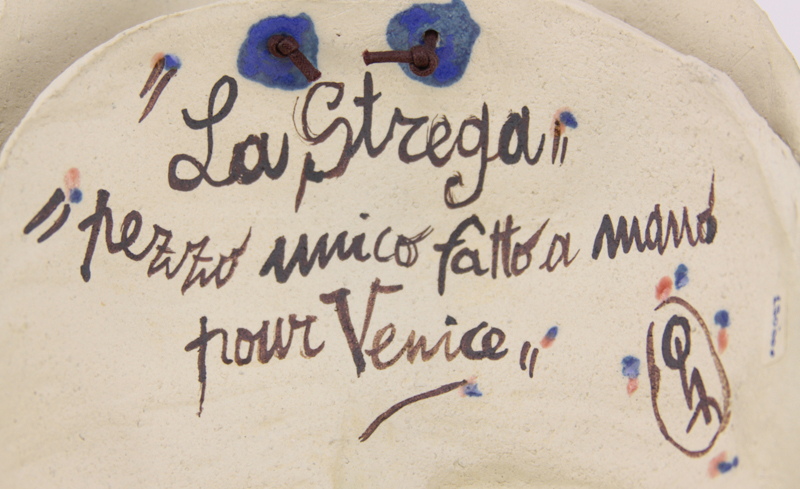 "La Strega"
"pezzo unico fatto a mano
pour Venice"